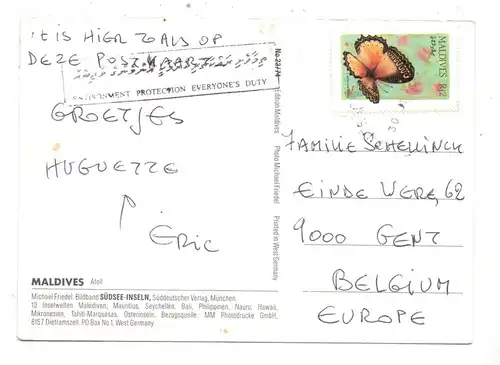 'T IS HIER ZOALS OP
DEZE POSTKAART
ENVIRONMENT PROTECTION EVERYONE'S DUTY
GROETJES
HUGUETTE
ERIC
MALDIVES Atoll
Michael Friedel. Bildband SÜDSEE-INSELN, Süddeutscher Verlag, München.
13 Inselwelten Malediven, Mauritius, Seychellen, Bali, Philippinen, Nauru, Hawaii,
Mikronesien, Tahiti-Marquesas, Osterinseln. Bezugsquelle MM Photodrucke GmbH,
8157 Dietramszell. PO Box No 1, West Germany.
Edition Maldives Photo Michael Friedel Printed in West Germany
MALDIVES
R12
FAMILIE SCHELLINCK
EINDE WERE, 62
9000 GENT
BELGIUM
EUROPE